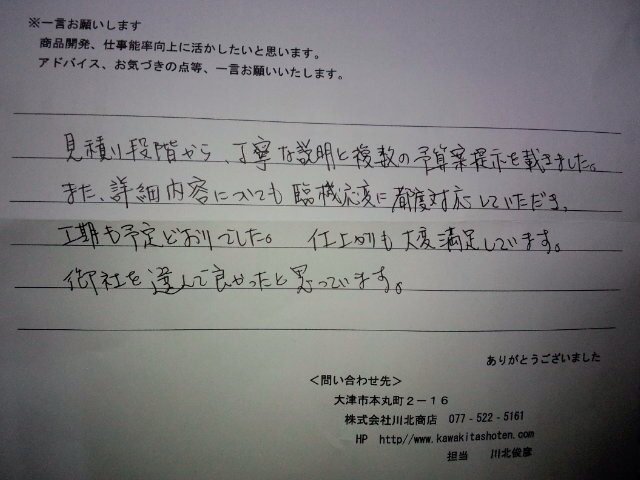 ※一言お願いします
商品開発、仕事能率向上に活かしたいと思います。
アドバイス、お気づきの点等、一言お願いいたします。
見積り段階から、丁寧な説明と複数の予算案提示を載きました。
また、詳細内容についても臨機応変に都度対応していただき、
工期も予定どおりでした。 仕上がりも大変満足しています。
御社を選んで良かったと思っています。
ありがとうございました
＜問い合わせ先＞
大津市本丸町２－１６
株式会社川北商店 077－522－5161
HP http//www.kawakitashoten.com
担当 川北俊彦